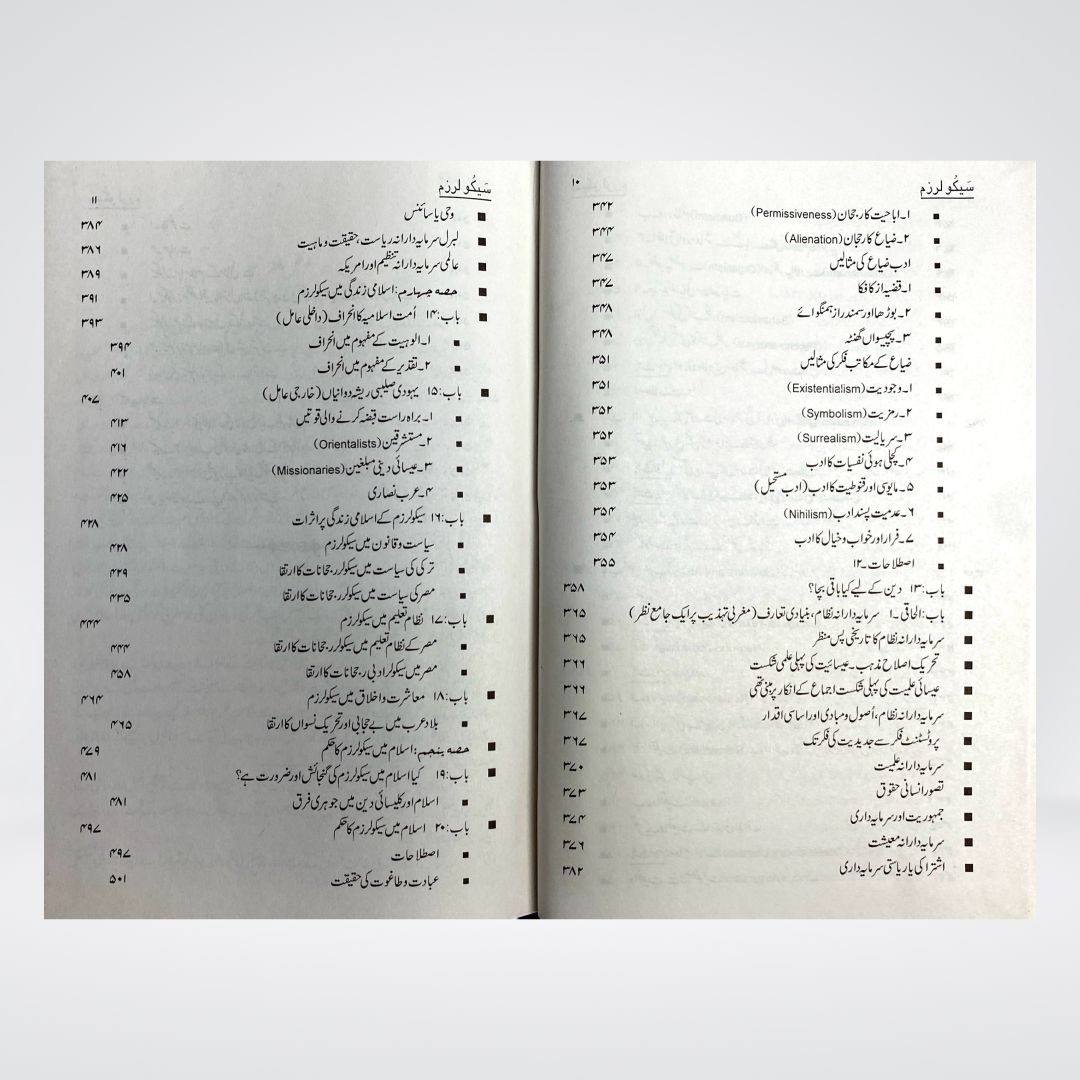 سَیکُولرزم ۱۰
۱۔ اباحیت کا رجحان (Permissiveness) ۳۴۲
۲۔ ضیاع کا رجحان (Alienation) ۳۴۴
ادب ضیاع کی مثالیں ۳۴۷
۱۔ قضیہ از کافکا ۳۴۷
۲۔ بوڑھا اور سمندر از ہمنگوائے ۳۴۸
۳۔ پچیسواں گھنٹہ ۳۴۸
ضیاع کے مکاتب فکر کی مثالیں ۳۵۱
۱۔ وجودیت (Existentialism) ۳۵۱
۲۔ رمزیت (Symbolism) ۳۵۲
۳۔ سریالیت (Surrealism) ۳۵۲
۴۔ کچلی ہوئی نفسیات کا ادب ۳۵۳
۵۔ مایوسی اور قنوطیت کا ادب (ادب مستحیل) ۳۵۳
۶۔ عدمیت پسند ادب (Nihilism) ۳۵۴
۷۔ فرار اور خواب و خیال کا ادب ۳۵۴
اصطلاحات۔ ۱۲ ۳۵۵
باب: ۱۳ دین کے لیے کیا باقی بچا؟ ۳۵۸
باب: الحاقی۔ ۱ سرمایہ دارانہ نظام، بنیادی تعارف (مغربی تہذیب پر ایک جامع نظر) ۳۶۵
سرمایہ دارانہ نظام کا تاریخی پس منظر ۳۶۵
تحریک اصلاح مذہب۔ عیسائیت کی پہلی علمی شکست ۳۶۶
عیسائی علمیت کی پہلی شکست اجماع کے انکار پر مبنی تھی ۳۶۶
سرمایہ دارانہ نظام، اُصول و مبادی اور اساسی اقدار ۳۶۷
پروٹسٹنٹ فکر سے جدیدیت کی فکر تک ۳۶۷
سرمایہ دارانہ علمیت ۳۷۰
تصور انسانی حقوق ۳۷۳
جمہوریت اور سرمایہ داری ۳۷۴
سرمایہ دارانہ معیشت ۳۷۶
اشتراکی یا ریاستی سرمایہ داری ۳۸۲
سَیکُولرزم ۱۱
وحی یا سائنس ۳۸۴
لبرل سرمایہ دارانہ ریاست، حقیقت و ماہیت ۳۸۶
عالمی سرمایہ دارانہ تنظیم اور امریکہ ۳۸۹
حصہ چہارم: اسلامی زندگی میں سیکولرزم ۳۹۱
باب: ۱۴ اُمت اسلامیہ کا انحراف (داخلی عامل) ۳۹۳
۱۔ الوہیت کے مفہوم میں انحراف ۳۹۴
۲۔ تقدیر کے مفہوم میں انحراف ۴۰۱
باب: ۱۵ یہودی صلیبی ریشہ دوانیاں (خارجی عامل) ۴۰۷
۱۔ براہ راست قبضہ کرنے والی قوتیں ۴۱۳
۲۔ مستشرقین (Orientalists) ۴۱۶
۳۔ عیسائی دینی مبلغین (Missionaries) ۴۲۲
۴۔ عرب نصاری ۴۲۵
باب: ۱۶ سیکولرزم کے اسلامی زندگی پر اثرات ۴۲۸
سیاست و قانون میں سیکولرزم ۴۲۸
ترکی کی سیاست میں سیکولر رجحانات کا ارتقا ۴۲۹
مصر کی سیاست میں سیکولر رجحانات کا ارتقا ۴۳۵
باب: ۱۷ نظام تعلیم میں سیکولرزم ۴۴۴
مصر کے نظام تعلیم میں سیکولر رجحانات کا ارتقا ۴۴۴
مصر میں سیکولر ادبی رجحانات کا ارتقا ۴۵۸
باب: ۱۸ معاشرت و اخلاق میں سیکولرزم ۴۶۴
بلاد عرب میں بے حجابی اور تحریک نسواں کا ارتقا ۴۶۵
حصہ پنجم: اسلام میں سیکولرزم کا حکم ۴۷۹
باب: ۱۹ کیا اسلام میں سیکولرزم کی گنجائش اور ضرورت ہے؟ ۴۸۱
اسلام اور کلیسائی دین میں جوہری فرق ۴۸۱
باب: ۲۰ اسلام میں سیکولرزم کا حکم ۴۹۷
اصطلاحات ۴۹۷
عبادت و طاغوت کی حقیقت ۵۰۱